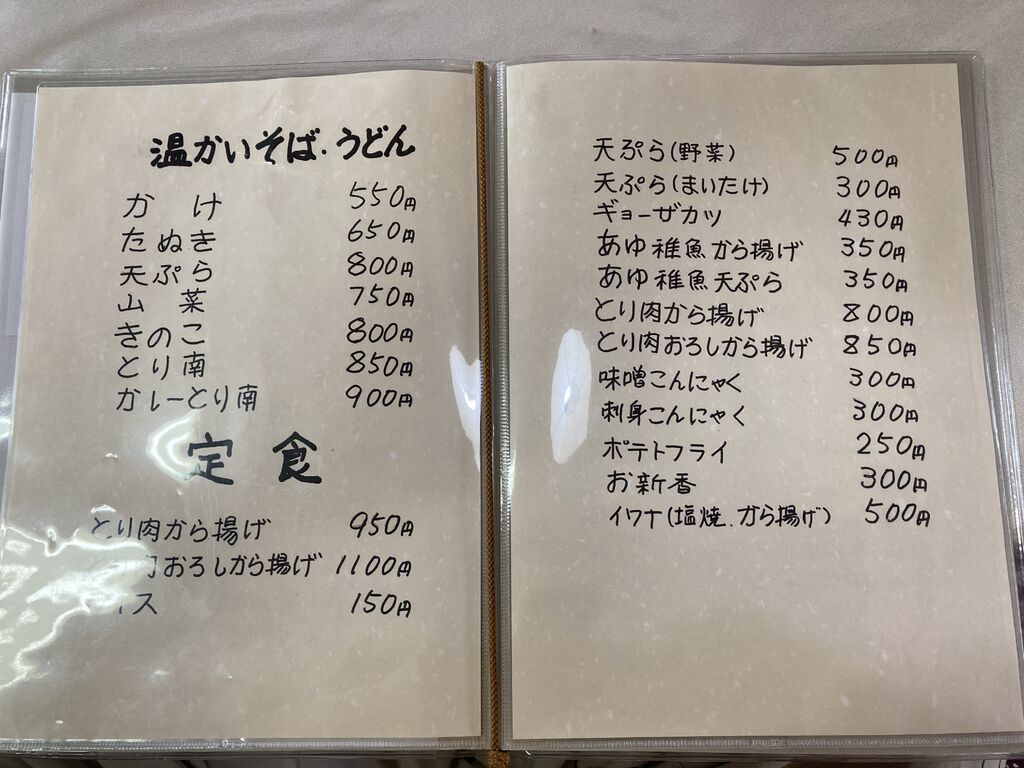 温かいそば.うどん
かけ 550円
たぬき 650円
天ぷら 800円
山菜 750円
きのこ 800円
とり南 850円
カレーとり南 900円
定食
とり肉から揚げ 950円
おろしから揚げ 1100円
イス 150円
天ぷら(野菜) 500円
天ぷら(まいたけ) 300円
ギョーザカツ 430円
あゆ稚魚から揚げ 350円
あゆ稚魚天ぷら 350円
とり肉から揚げ 800円
とり肉おろしから揚げ 850円
味噌こんにゃく 300円
刺身こんにゃく 300円
ポテトフライ 250円
お新香 300円
イワナ(塩焼.から揚げ) 500円